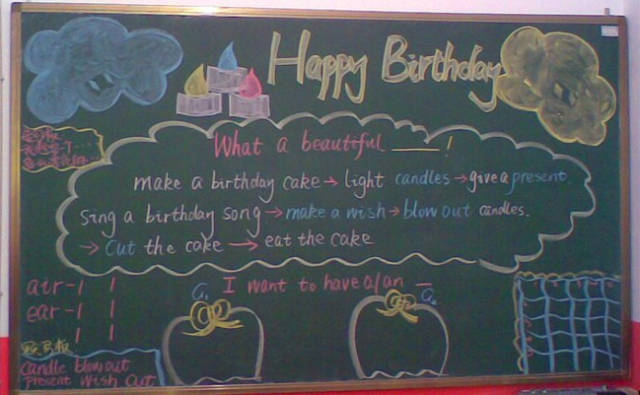 Happy Birthday
What a beautiful ____!
make a birthday cake → light candles → give a present.
sing a birthday song → make a wish → blow out candles.
→ Cut the cake → eat the cake
I want to have a/an __
G₁ G₂
air-
ear-
candle blow out
present wish cut